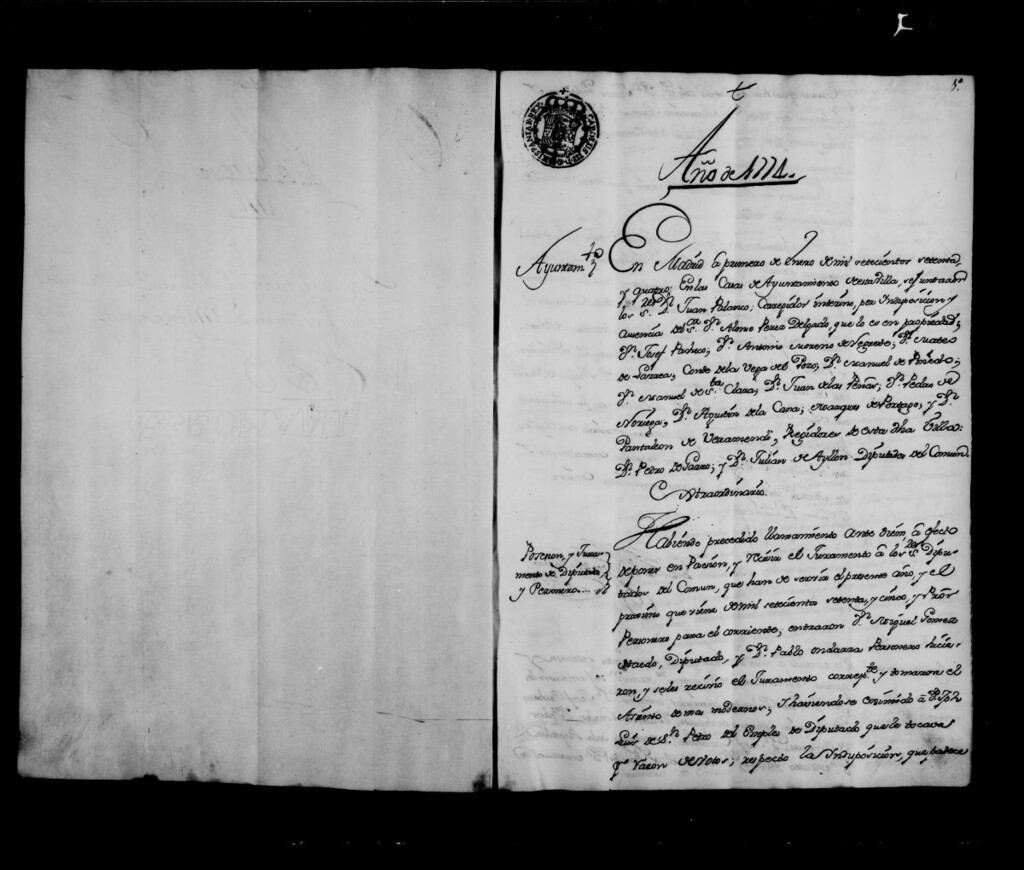 5º
CAROLUS III D G HISPANIAR REX
Año de 1774.
Ayuntam.to
En Madrid à primero de Enero de mil setecientos setenta,
y quatro; En las Casas de Ayuntamiento de esta Villa, se juntaron
los S.res D.n Juan Palanco, Corregidor interino, por Indisposicion y
ausencia del S.or D.n Alonso Perez Delgado, que lo es en propiedad;
D.n Josef Pacheco; D.n Antonio Moreno de Negrete; D.n Mateo
de Larrea; Conde de la Vega de el Pozo; D.n Manuel de Pinedo;
D.n Manuel de S.ta Clara; D.n Juan de las Peñas; D.n Pedro de
Noriega; D.n Agustin de la Cana; Marques de Portago; y D.n
Pantaleon de Veramendi, Regidores de esta dha Villa:
D.n Pedro de; y D.n Julian de Ayllon Diputados del Comun.
Extraordinario.
Posesion, y Jura-
mento de Diputado
y Personero....
Habiendo precedido llamamiento ante diem, à efecto
de poner en Posesion, y recivir el Juramento à los S.res Dipu-
tados del Comun, que han de servir el presente año, y el
proximo que viene de mil setecientos setenta, y cinco, y Pror
Personero para el corriente; entraron D.n Miguel Gomez
Diputado, y D.n Pablo Ondarza Personero
ron, y se les recivio el Juramento corresp.te y tomaron el
Asiento de mas modernos; y haviendose eximido à D.n Jph
Luis de S.n Pedro del Empleo de Diputado que le tocava
p.r razon de Votos; respecto la Indisposicion, que padece